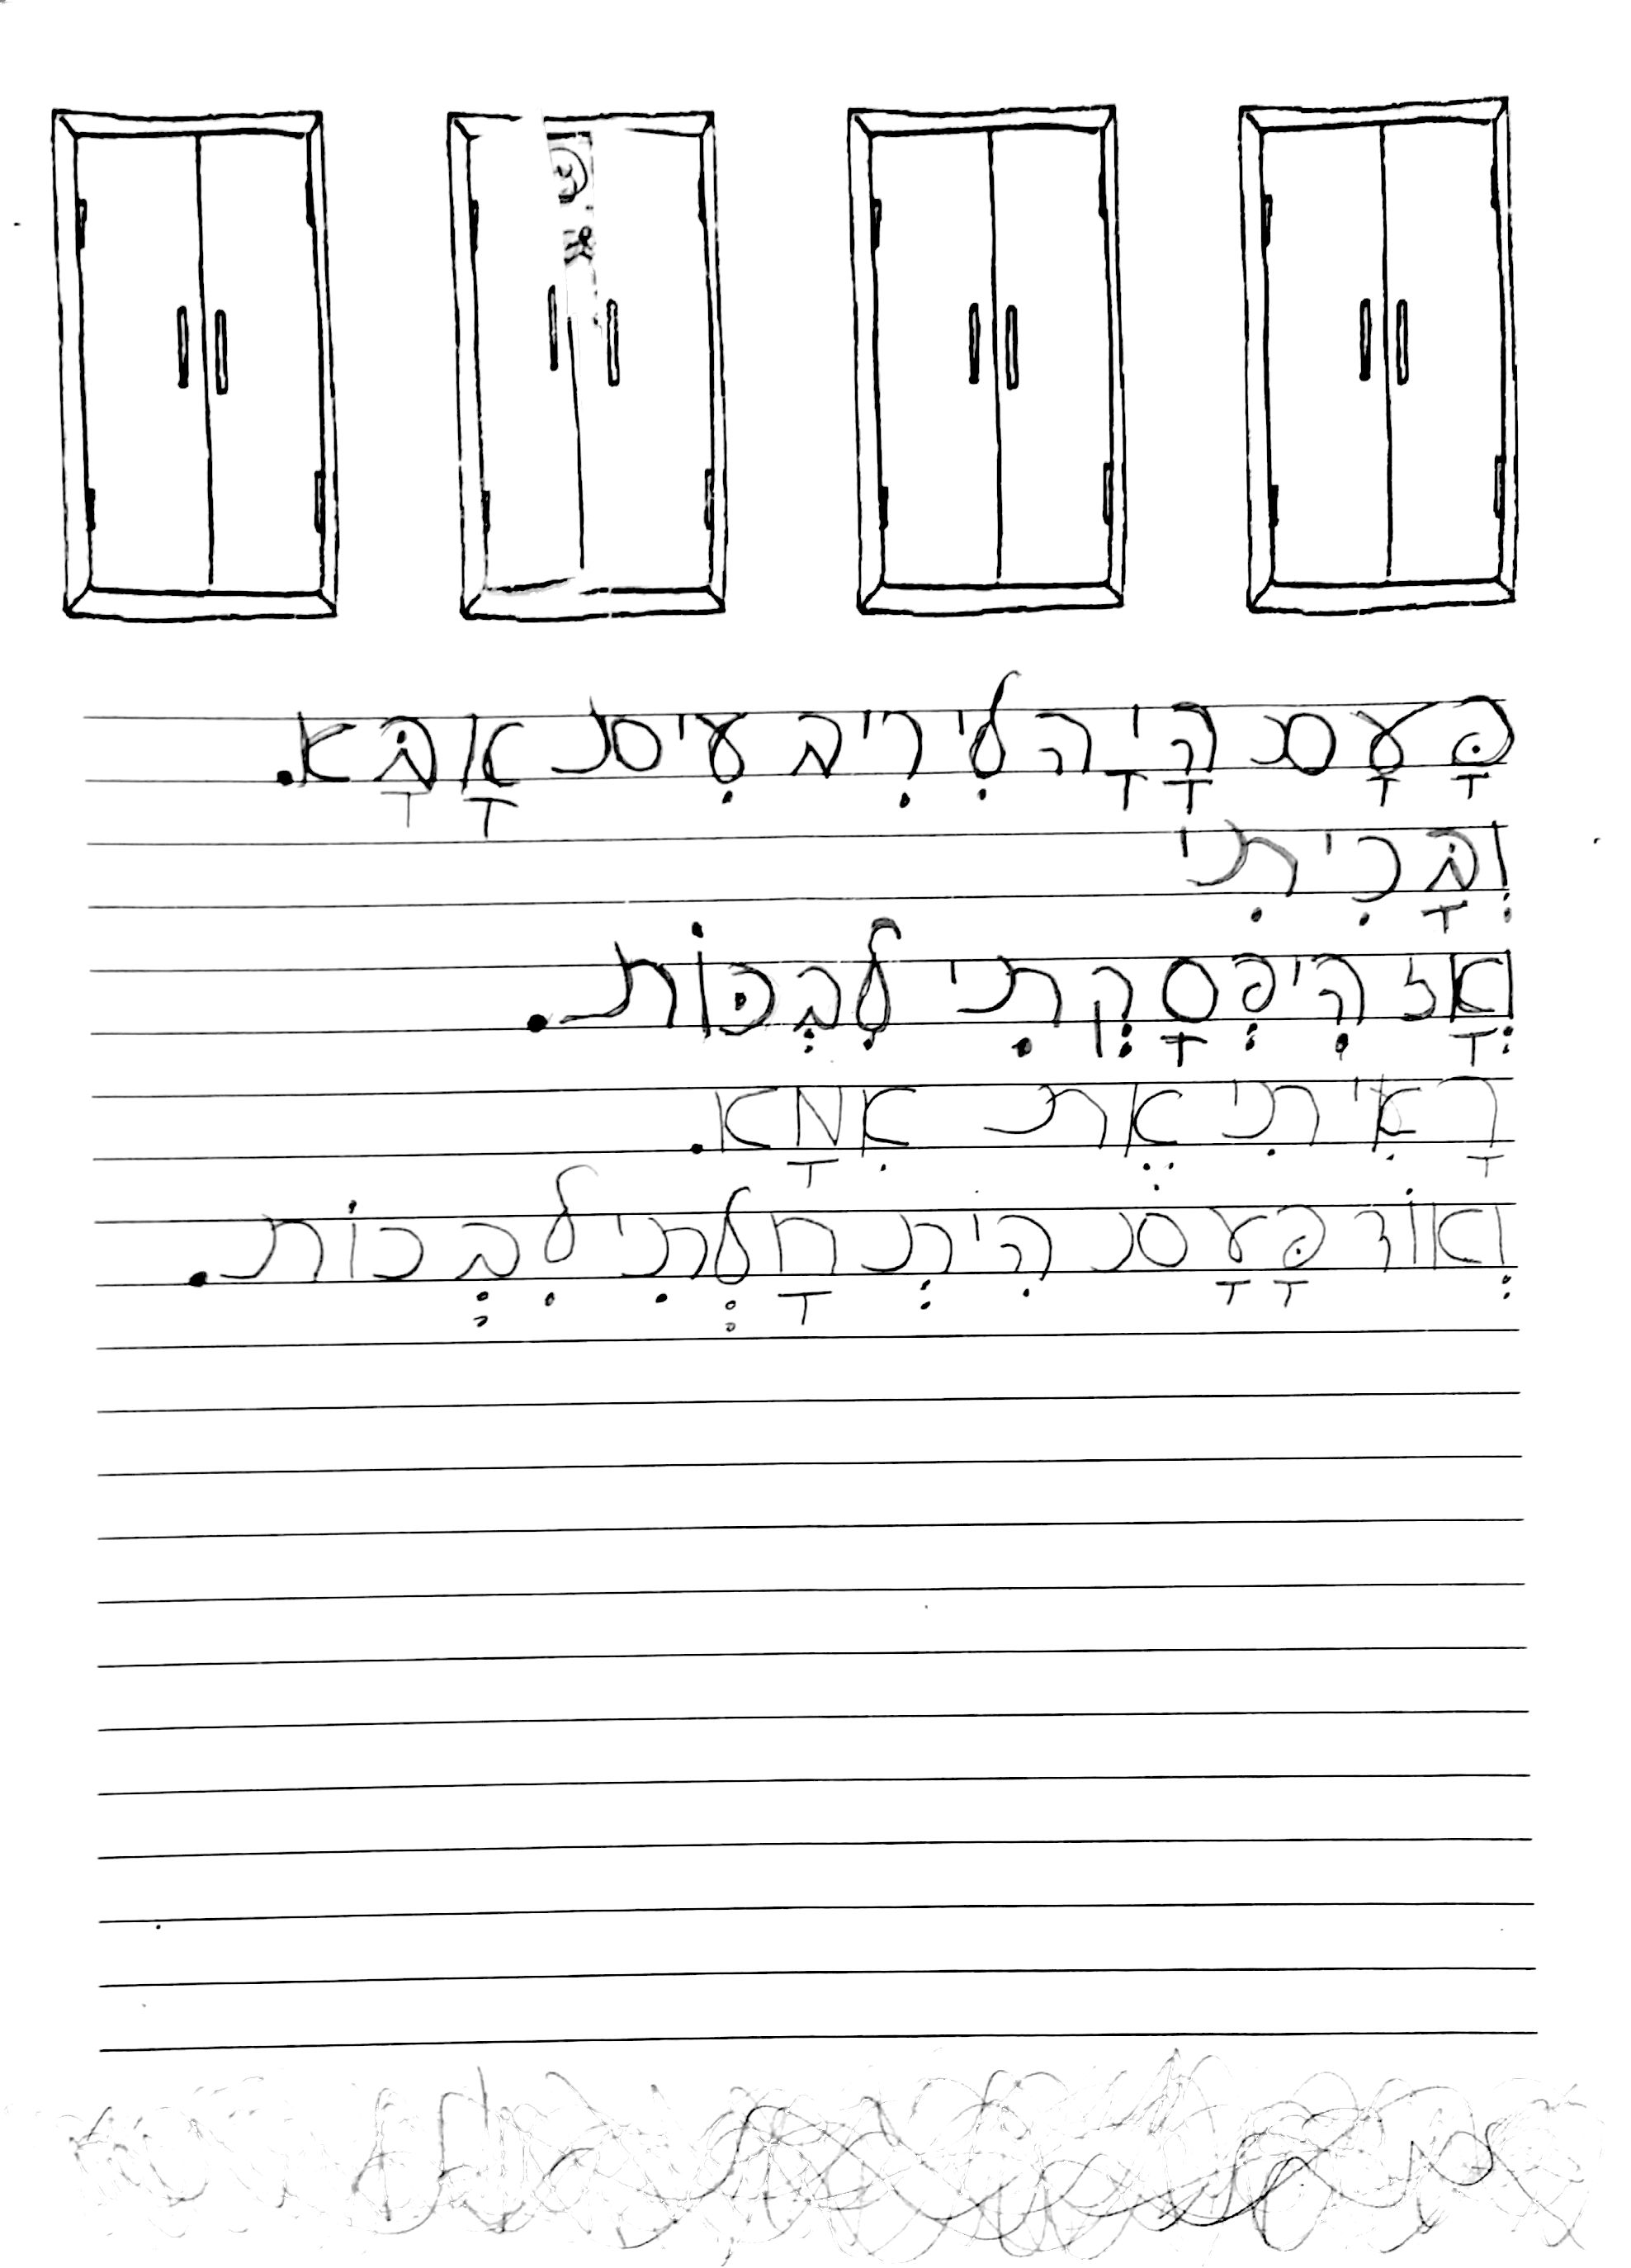 פָּעָם הָיָה לִי רִיב עִים אָבָּא.
וְבָּכִיתִי
וְאָז הִיפְסָקְתִי לִבְכּוֹת.
רָאִיתִי אֶת אִמָא.
וְאוֹד פָּעָם הִיתְ חָלְתִי לִבְכוֹת.